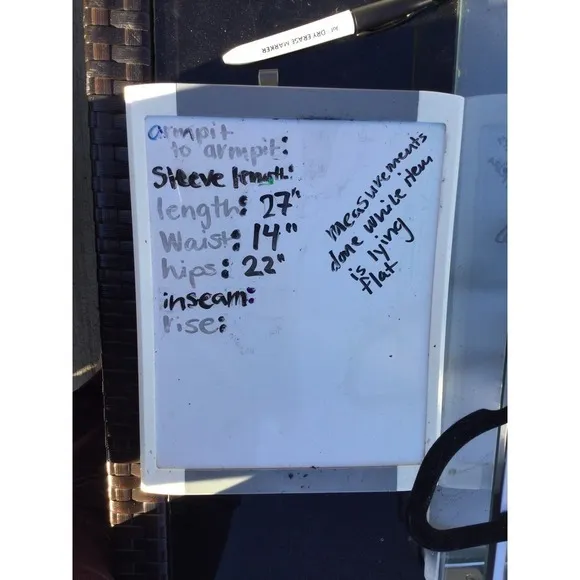 DRY ERASE MARKER
armpit
to armpit:
Sleeve length:
length: 27"
Waist: 14"
hips: 22"
inseam:
rise:
measurements
done while item
is lying
flat